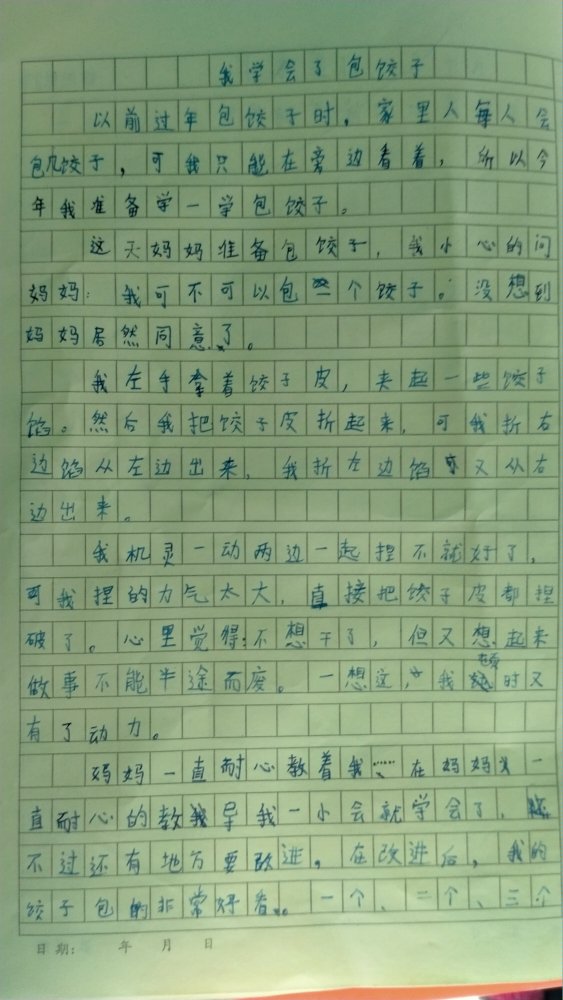 我学会了包饺子
以前过年包饺子时，家里人每人会
包几饺子，可我只能在旁边看着，所以今
年我准备学一学包饺子。
这天妈妈准备包饺子，我小心的问
妈妈：我可不可以包一个饺子。没想到
妈妈居然同意了。
我左手拿着饺子皮，夹起一些饺子
馅。然后我把饺子皮折起来，可我折右
边馅从左边出来，我折左边馅又从右
边出来。
我机灵一动两边一起捏不就好了，
可我捏的力气太大，直接把饺子皮都捏
破了。心里觉得：不想干了，但又想起来
做事不能半途而废。一想这，我顿时又
有了动力。
妈妈一直耐心教着我……在妈妈一
直耐心的教导我一小会就学会了，
不过还有地方要改进，在改进后，我的
饺子包的非常好看。一个、二个、三个
日期： 年 月 日